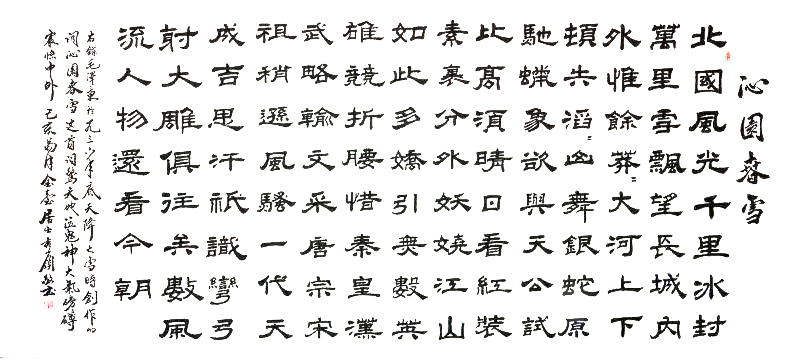 沁園春雪
北國風光千里冰封
萬里雪飄望長城內
外惟餘莽〻大河上下
頓失滔〻山舞銀蛇原
馳蠟象欲與天公試
比高須晴日看紅裝
素裹分外妖嬈江山
如此多嬌引無數英
雄競折腰惜秦皇漢
武略輸文采唐宗宋
祖稍遜風騷一代天
成吉思汗祇識彎弓
射大雕俱往矣數風
流人物還看今朝
右錄毛澤東於一九三六年底天降大雪時創作的
詞沁園春雪這首詞驚天地泣鬼神大氣磅礴
震憾中外己亥月金臺居士書